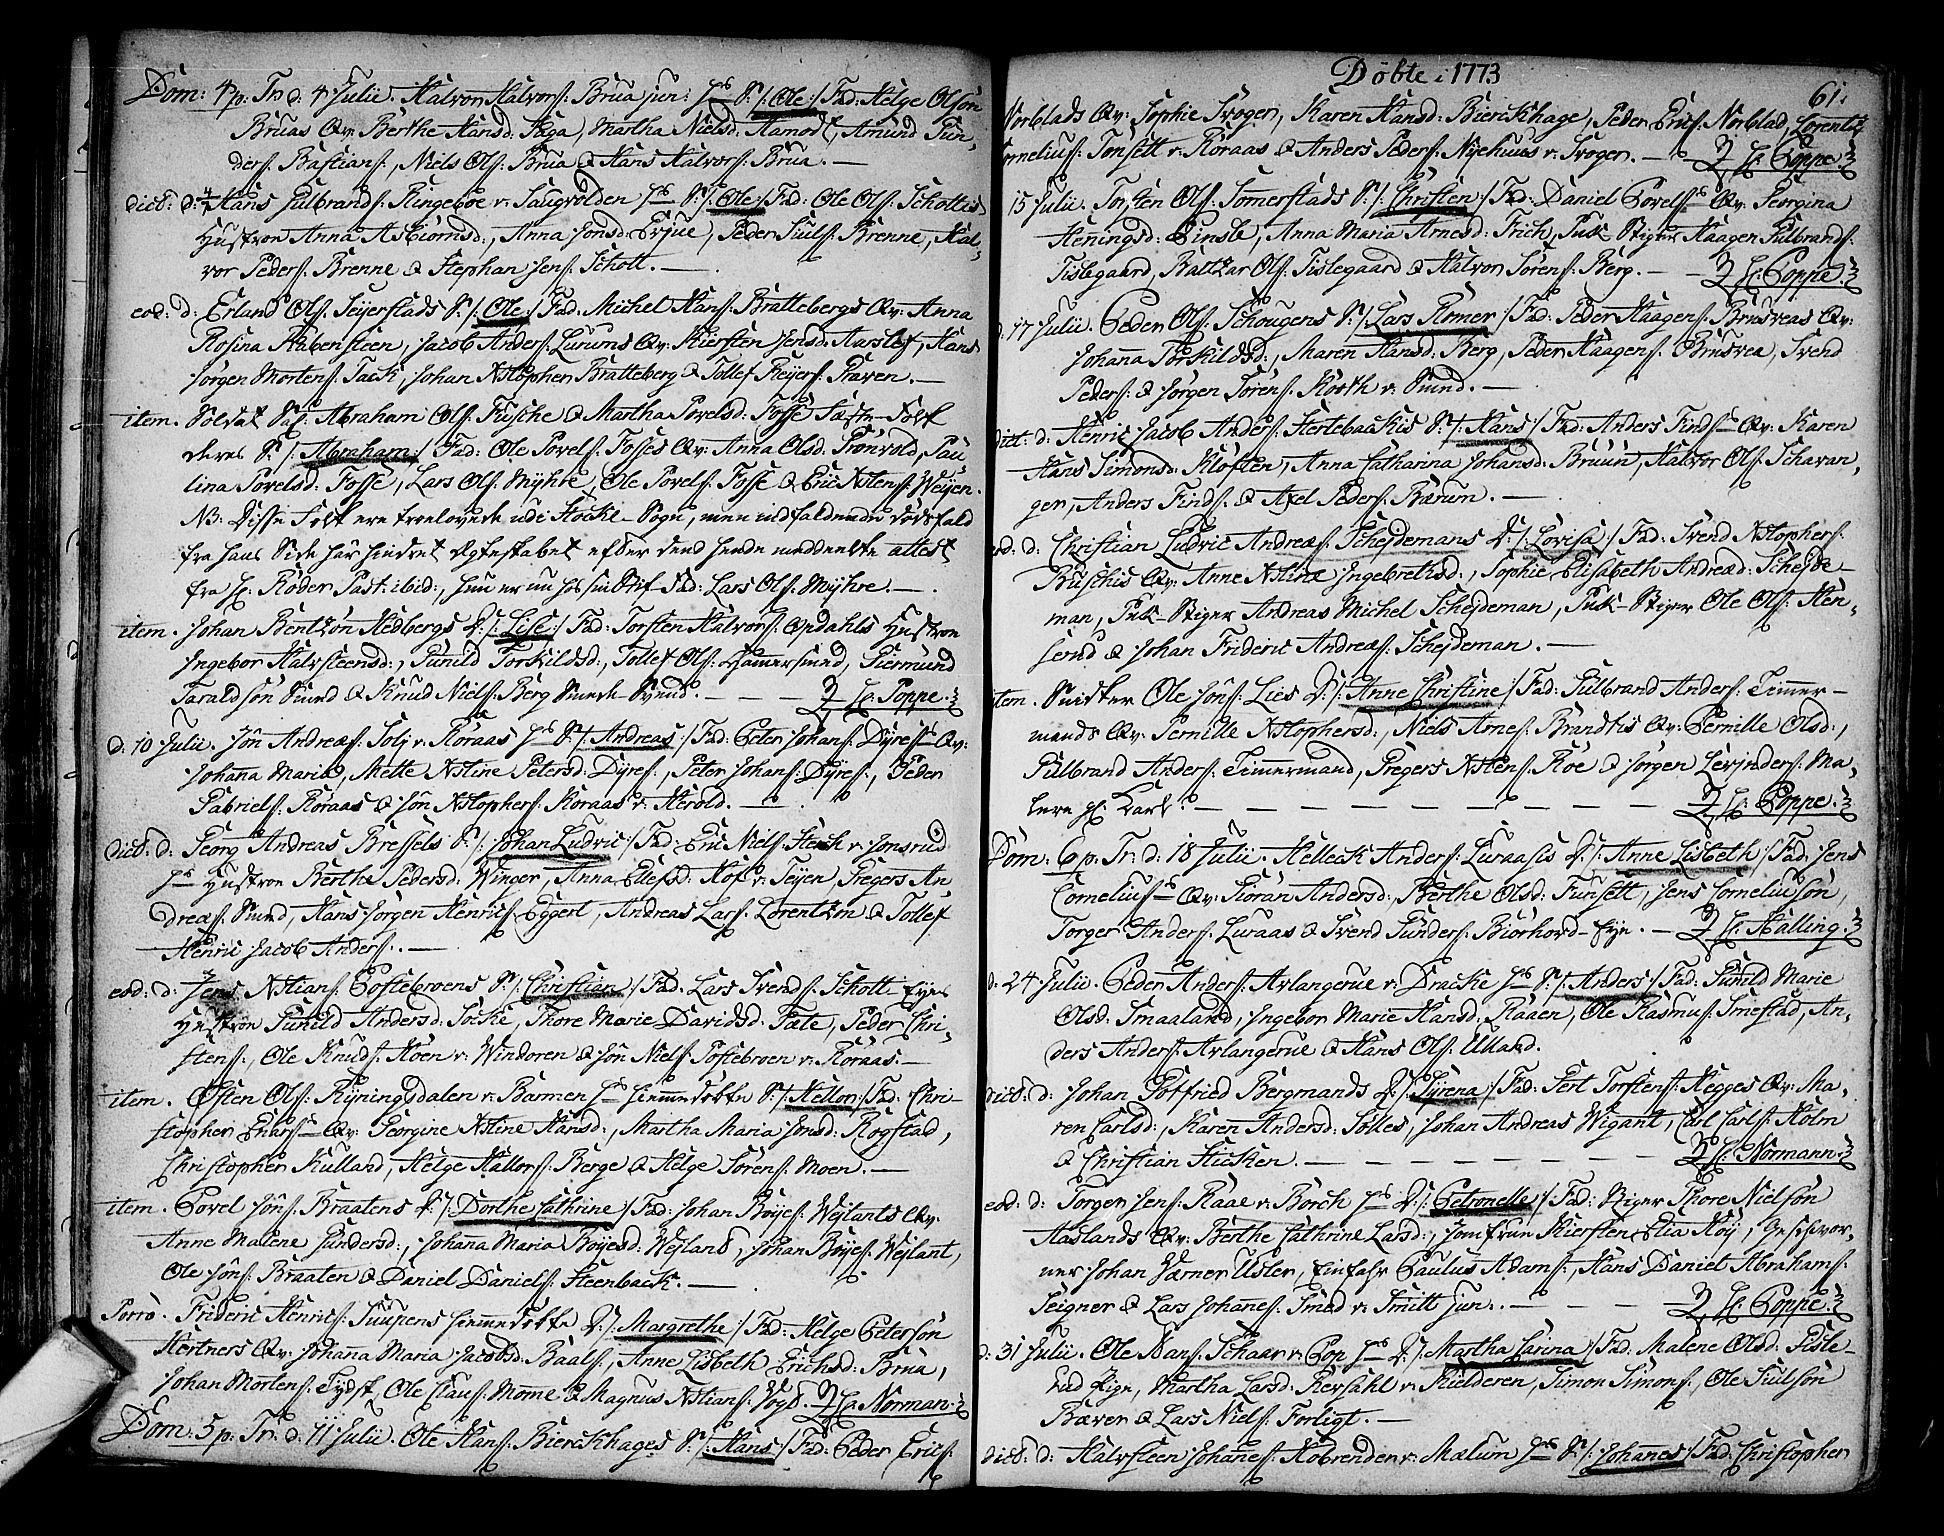 Dom: 4 p. Tr. d. 4 Julii. Halvor Halvors: Brua jun: Hs S. /: Ole :/ Fad: Helge Olsøn
Bruas Qv: Berthe Hansd: Haga, Martha Nielsd: Aamodt, Amund Gun-
ders: Bastians:, Niels Ols: Brua & Hans Halvors: Brua. —
dict: d: 4/7 Hans Gulbrands: Ringeboe v: Saugvolden Hs S. /: Ole :/ Fad: Ole Ols: Schottis
Hustroe Anna Asbiørnsd:, Anna Jonsd: Erjue, Peder Juuls: Brenne, Hal-
vor Peders: Brenne & Stephan Jens: Schott. —
eod: d: Erland Ols: Sejerstads S. /: Ole :/ Fad: Michel Hans: Brattebergs Qv: Anna
Rosina Habensteen, Jacob Anders: Lurums Qv: Kiersten Jensd: Aarslet, Hans
Jørgen Mortens: Tack, Johan Xstopher Bratteberg & Tollef Rejers: Præven. —
item. Soldat Sal: Abraham Ols: Fusche & Martha Povelsd: Fosse
deres S. /: Abraham :/ Fad: Ole Povels: Fosses Qv: Anna Olsd: Grønvold, Pau
lina Povelsd: Fosse, Lars Ols: Myhre, Ole Povels: Fosse & Eric Xstens: Weyen.
NB: Disse Folk ere troelovede udi Hocke-Sogn, men indfaldende dødsfald
fra hans Side har hindret Ægteskabet efter dend hende meddeelte attest
fra H: Røder Past: ibid:, hun er nu hos sin Stif-Fad: Lars Ols: Myhre. —
item. Johan Bentzøn Hedbergs D. /: Lise :/ Fad: Torsten Halvors: Opdahls Hustroe
Ingebor Halvsteensd:, Gunild Torkildsd:, Tollef Ols: Hammersmed, Giermund
Taraldsøn Smed & Knud Niels: Berg Smede-Svend. — — — H: Poppe.
d. 10 Julii. Jøn Andreæs: Solj v: Røraas Hs S. /: Andreas :/ Fad: Peter Johans: Dyres: Qv:
Johanna Maria, Mette Xstine Petersd: Dyres:, Peter Johans: Dyres:, Peder
Gabriels: Røraas & Jøn Xstophers: Røraas v: Herold. —
dict: d: Georg Andreas Bressels S. /: Johan Ludvic :/ Fad: Eric Niels: Stærk v: Jonsrud
Hs Hustroe Berthe Pedersd: Winger, Anna Ellefsd: Hof v: Tejen, Gregers An
dreæs: Smed, Hans Jørgen Henrics: Eggert, Andreas Lars: Lorentzen & Tollef
Henric Jacob Anders:. —
eod: d: Jens Xstians: Gostebroens S. /: Christian :/ Fad: Lars Svends: Schott: Eyes
Hustroe Gunild Andersd: Socke, Thore Marie Davidsd: Fæte, Peder Chri-
stens:, Ole Knuds: Moen v: Windoren & Jøn Niels: Gostebroen v: Røraas. —
item. Østen Ols: Ryningsdalen v: Barmen Hs hiemmedøbte S. /: Hellor :/ Fad: Chri-
stopher Enars: Qv: Georgine Xstine Hansd:, Martha Maria Jonsd: Rogstad,
Christopher Kulland, Helge Hallors: Berge & Helge Sørens: Moen. —
item. Povel Jøns: Braatens D. /: Dorthe Cathrine :/ Fad: Johan Bøyes: Wejlants Qv:
Anne Malene Gundersd:, Johanna Maria Bøyesd: Wejland, Johan Bøyes: Wejlant,
Ole Jøns: Braaten & Daniel Daniels: Steenback. —
Porro. Frideric Henrics: Juupens hiemmedøbte D. /: Margrethe :/ Fad: Helge Petersøn
Hertners Qv: Johanna Maria Jacobsd: Baals:, Anne Lisbeth Erichsd: Brua,
Johan Mortens: Tydsk, Ole Claus: Momme & Magnus Xstians: Vogd. H: Norman.
Dom: 5 p. Tr. d. 11 Julii. Ole Hans: Bierckhages S. /: Hans :/ Fad: Peder Erics:
Døbte i 1773
61.
Norblads Qv: Sophie Trøgen, Karen Hansd: Bierckhage, Peder Erics: Norblad, Lorentz
Cornelius: Tønsett v: Røraas & Anders Peders: Nyehuus v: Trøgen. — H: Poppe
15 Julii. Torsten Ols: Sommerstads S. /: Christen :/ Fad: Daniel Povels: Qv: Georgina
Henningsd: Einsle, Anna Maria Arnesd: Frich, Puk-Stiger Haagen Gulbrands:
Tislegaard, Baltzar Ols: Tislegaard & Halvor Sørens: Berg. — — H: Poppe.
d. 17 Julii. Peder Ols: Schougens S. /: Lars Rømer :/ Fad: Peder Haagens: Brusveas Qv:
Johanna Torskildsd:, Maren Hansd: Berg, Peder Haagens: Brusvea, Svend
Peders: & Jørgen Sørens: Kooth v: Smed. —
dict: d: Henric Jacob Anders: Hertebackis S. /: Hans :/ Fad: Anders Finds: Qv: Karen
Hans Simonsd: Kløften, Anna Catharina Johansd: Bruun, Halvor Ols: Schavan-
ger, Anders Finds: & Axel Peders: Bærum. —
eod: d: Christian Ludvic Andreæs: Schejdemans D. /: Lovisa :/ Fad: Svend Xstophers:
Buschis Qv: Anne Xstine Ingebretsd:, Sophie Elisabeth Andreæd: Schejde-
man, Puk-Stiger Andreas Michel Schejdeman, Puk-Stiger Ole Ols: Hen-
serud & Johan Frideric Andreæs: Schejdeman. —
item. Snidker Ole Jøns: Lies D. /: Anne Christine :/ Fad: Gulbrand Anders: Timmer-
mands Qv: Pernille Xstophersd:, Niels Arnes: Brandtis Qv: Pernille Olsd:,
Gulbrand Anders: Timmermand, Gregers Xstens: Roe & Jørgen Levinders: Ma-
lere Karl. — — — — — — — — H: Poppe.
Dom: 6 p. Tr: d: 18 Julii. Helleck Anders: Luraasis D. /: Anne Lisbeth :/ Fad: Jens
Cornelius: Qv: Giøran Andersd:, Berthe Olsd: Funsett, Jens Corneliusøn,
Torger Anders: Luraas & Svend Gunders: Biørhovd-Eye. — H: Halling.
d. 24 Julii. Peder Anders: Arlangerue v: Dracke Hs S. /: Anders :/ Fad: Gunild Marie
Olsd: Smaaland, Ingebor Marie Hansd: Raaen, Ole Rasmus: Smestad, An-
ders Anders: Arlangerue & Hans Ols: Ulland.
dict: d: Johan Gotfried Bergmands D. /: Syrena :/ Fad: Gert Torstens: Hegges Qv: Ma-
ren Carlsd:, Karen Andersd: Solles, Johan Andreas Wigant, Carl Carls: Holm
& Christian Hicken. — — — — — — — H: Normann.
eod: d: Torger Jens: Raae v: Borch Hs D. /: Petronelle :/ Fad: Stiger Thore Nielsøn
Aaslands Qv: Berthe Cathrine Larsd:, Jomfrue Kiersten Elia Høy, Geschvor-
ner Johan Værner Usler, Einfahr Paulus Adams:, Hans Daniel Abrahams:
Seigner & Lars Johannes: Smed v: Smitt jun:. — — — H: Poppe.
d: 31 Julii. Ole Hans: Schaar v: Pop Hs D. /: Martha Carina :/ Fad: Malene Olsd: Fisle-
rud Eye, Martha Larsd: Kersahl v: Kielderen, Simon Simons:, Ole Juulsøn
Bæver & Lars Niels: Forligt. —
dict: d: Halvsteen Johannes: Hobrenden v: Mælum Hs S. /: Johannes :/ Fad: Christopher